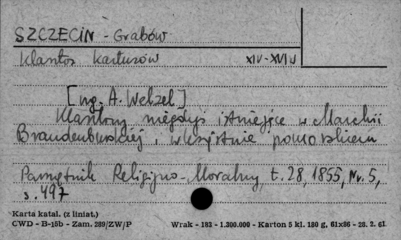 SZCZECIN - Grabów
Klasztor kartuzów XIV-XVI w
[ng. A. Welzel]
Klasztory niegdyś istniejące w Marchii
Brandenburskiej, w księstwie pomorskiem
Pamiętnik Religijno-Moralny t. 28, 1855, Nr. 5,
s. 497
Karta katal. (z liniat.)
CWD - B-15b - Zam. 289/ZW/P Wrak - 183 - 1.300.000 - Karton 5 kl. 180 g, 61x86 - 28. 2. 61.